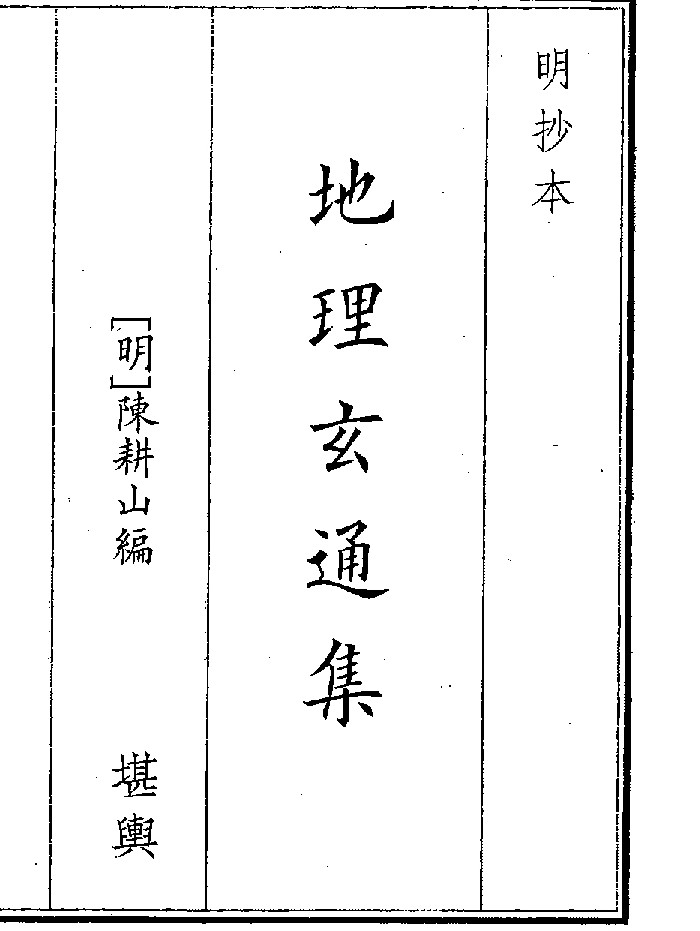 明抄本
地理玄通集
[明]陳耕山編
堪輿